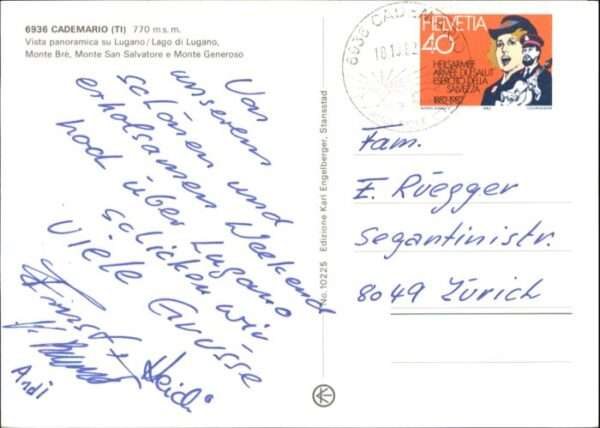 6936 CADEMARIO (TI) 770 m s. m.
Vista panoramica su Lugano/Lago di Lugano,
Monte Brè, Monte San Salvatore e Monte Generoso
Von
unserem
schönen und
erholsamen Weekend
hoch über Lugano
schicken wir
Viele Grüsse
Ernst Heidi
Andi
No. 10225 Edizione Karl Engelberger, Stansstad
6936 CADEMARIO
HELVETIA
40
HEILSARMEE
ARMÉE DU SALUT
ESERCITO DELLA
SALVEZZA
1882-1982
Fam.
E. Rüegger
Segantinistr.
8049 Zürich